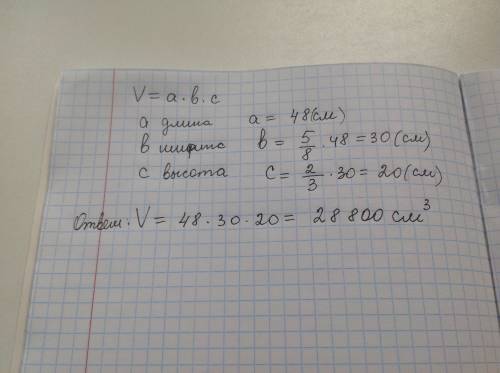 V = a · b · c
а длина a = 48 (см)
в ширина b = 5/8 · 48 = 30 (см)
с высота c = 2/3 · 30 = 20 (см)
Ответ: V = 48 · 30 · 20 = 28 800 см³